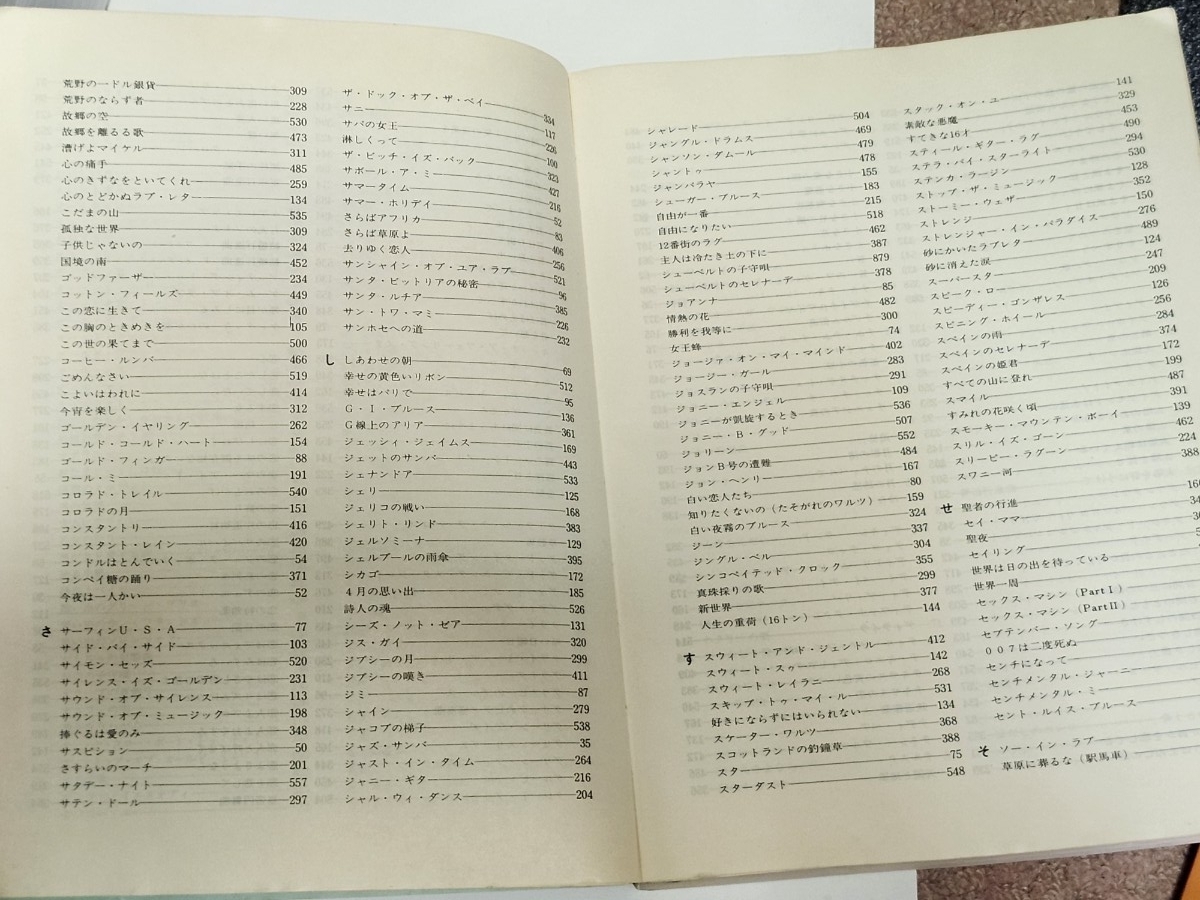 荒野の一ドル銀貨 309
荒野のならず者 228
故郷の空 530
故郷を離るる歌 473
漕げよマイケル 311
心の痛手 485
心のきずなをといてくれ 259
心のとどかぬラブ・レター 134
こだまの山 535
孤独な世界 309
子供じゃないの 324
国境の南 452
ゴッドファーザー 234
コットン・フィールズ 449
この恋に生きて 340
この胸のときめきを 105
この世の果てまで 500
コーヒー・ルンバ 466
ごめんなさい 519
こよいはわれに 414
今宵を楽しく 312
ゴールデン・イヤリング 262
コールド・コールド・ハート 154
ゴールド・フィンガー 88
コール・ミー 191
コロラド・トレイル 540
コロラドの月 151
コンスタントリー 416
コンスタント・レイン 420
コンドルはとんでいく 54
コンペイ糖の踊り 371
今夜は一人かい 52
さ サーフィンU・S・A 77
サイド・バイ・サイド 103
サイモン・セッズ 520
サイレンス・イズ・ゴールデン 231
サウンド・オブ・サイレンス 113
サウンド・オブ・ミュージック 198
捧ぐるは愛のみ 348
サスピション 50
さすらいのマーチ 201
サタデー・ナイト 557
サテン・ドール 297
ザ・ドック・オブ・ザ・ベイ 334
サニー 117
サバの女王 226
淋しくって 100
ザ・ビッチ・イズ・バック 323
サボール・ア・ミー 427
サマータイム 216
サマー・ホリデイ 52
さらばアフリカ 83
さらば草原よ 406
去りゆく恋人 256
サンシャイン・オブ・ユア・ラブ 521
サンタ・ビットリアの秘密 96
サンタ・ルチア 385
サン・トワ・マミー 226
サンホセへの道 232
し しあわせの朝 69
幸せの黄色いリボン 512
幸せはパリで 95
G・I・ブルース 136
G線上のアリア 361
ジェッシィ・ジェイムス 169
ジェットのサンバ 443
シェナンドア 533
シェリー 125
ジェリコの戦い 168
シェリト・リンド 383
ジェルソミーナ 129
シェルブールの雨傘 395
シカゴ 172
4月の思い出 185
詩人の魂 526
シーズ・ノット・ゼア 131
ジス・ガイ 320
ジプシーの月 299
ジプシーの嘆き 411
ジミー 87
シャイン 279
ジャコブの梯子 538
ジャズ・サンバ 35
ジャスト・イン・タイム 264
ジャニー・ギター 216
シャル・ウィ・ダンス 204
シャレード 504
ジャングル・ドラムス 469
シャンソン・ダムール 479
シャントゥ 478
ジャンバラヤ 155
シューガー・ブルース 183
自由が一番 215
自由になりたい 518
12番街のラグ 462
主人は冷たき土の下に 387
シューベルトの子守唄 879
シューベルトのセレナーデ 378
ジョアンナ 85
情熱の花 482
勝利を我等に 300
女王蜂 74
ジョージァ・オン・マイ・マインド 402
ジョージー・ガール 283
ジョスランの子守唄 291
ジョニー・エンジェル 109
ジョニーが凱旋するとき 536
ジョニー・B・グッド 507
ジョリーン 552
ジョンB号の遭難 484
ジョン・ヘンリー 167
白い恋人たち 80
知りたくないの(たそがれのワルツ) 159
白い夜霧のブルース 324
ジーン 337
ジングル・ベル 304
シンコペイテッド・クロック 355
真珠採りの歌 299
新世界 377
人生の重荷(16トン) 144
す スウィート・アンド・ジェントル 412
スウィート・スゥー 142
スウィート・レイラニ 268
スキップ・トゥ・マイ・ルー 531
好きにならずにはいられない 134
スケーター・ワルツ 368
スコットランドの釣鐘草 388
スター 75
スターダスト 548
スタック・オン・ユー 141
素敵な悪魔 329
すてきな16才 453
スティール・ギター・ラグ 490
ステラ・バイ・スターライト 294
ステンカ・ラージン 530
ストップ・ザ・ミュージック 128
ストーミー・ウェザー 352
ストレンジ 150
ストレンジャー・イン・パラダイス 276
砂にかいたラブレター 489
砂に消えた涙 124
スーパースター 247
スピーク・ロー 209
スピーディー・ゴンザレス 126
スピニング・ホイール 256
スペインの雨 284
スペインのセレナーデ 374
スペインの姫君 172
すべての山に登れ 199
スマイル 487
すみれの花咲く頃 391
スモーキー・マウンテン・ボーイ 139
スリル・イズ・ゴーン 462
スリーピー・ラグーン 224
スワニー河 388
せ 聖者の行進
セイ・ママ
聖夜
セイリング
世界は日の出を待っている
世界一周
セックス・マシン(PartⅠ)
セックス・マシン(PartⅡ)
セプテンバー・ソング
007は二度死ぬ
センチになって
センチメンタル・ジャーニー
センチメンタル・ミー
セント・ルイス・ブルース
そ ソー・イン・ラブ
草原に葬るな(駅馬車)